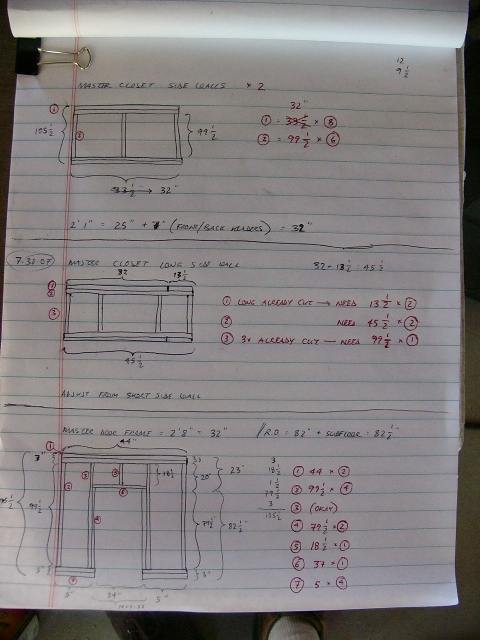 12
9 1/2
MASTER CLOSET SIDE WALLS × 2
32"
① = 33 1/2 × ⑧
② = 99 1/2 × ⑥
①
②
105 1/2
99 1/2
33 1/2 → 32"
2' 1" = 25" + 7" (FRONT/BACK HEADERS) = 32"
7.30.07 MASTER CLOSET LONG SIDE WALL 32 + 13 1/2 : 45 1/2
32
13 1/2
①
②
③
45 1/2
① LONG ALREADY CUT → NEED 13 1/2 × ②
② NEED 45 1/2 × ②
③ 3x ALREADY CUT — NEED 99 1/2 × ①
ADJUST FROM SHORT SIDE WALL
MASTER DOOR FRAME = 2' 8" = 32" // R.O = 82" + SUBFLOOR = 82 1/2
44"
①
3"
99 1/2
18 1/2
20"
23"
79 1/2
82 1/2
3"
5"
34"
5"
3
18 1/2
1 1/2
79 1/2
3
105 1/2
① 44 × ②
② 99 1/2 × ④
③ (OKAY)
④ 79 1/2 × ②
⑤ 18 1/2 × ①
⑥ 37 × ①
⑦ 5 × ④